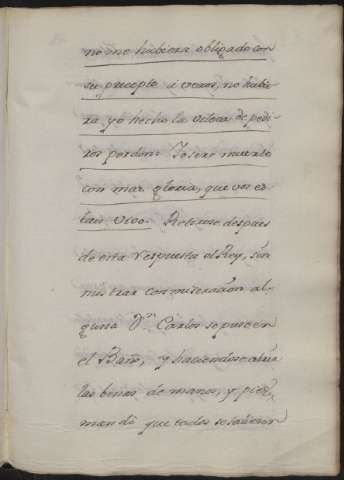 no me hubiera obligado con
su precepto i vozes, no hubie
ra yo hecho la de pedi
ros perdon: Yo sere muerto
con mas gloria, que vos es
tais vivo. Retirose despues
de esta respuesta el Rey, sin
mostrar conmiseracion al-
guna Dn. Carlos se puso en
el Baño, y haciendose abrir
las benas de manos, y pies,
mandó que todos se salieron